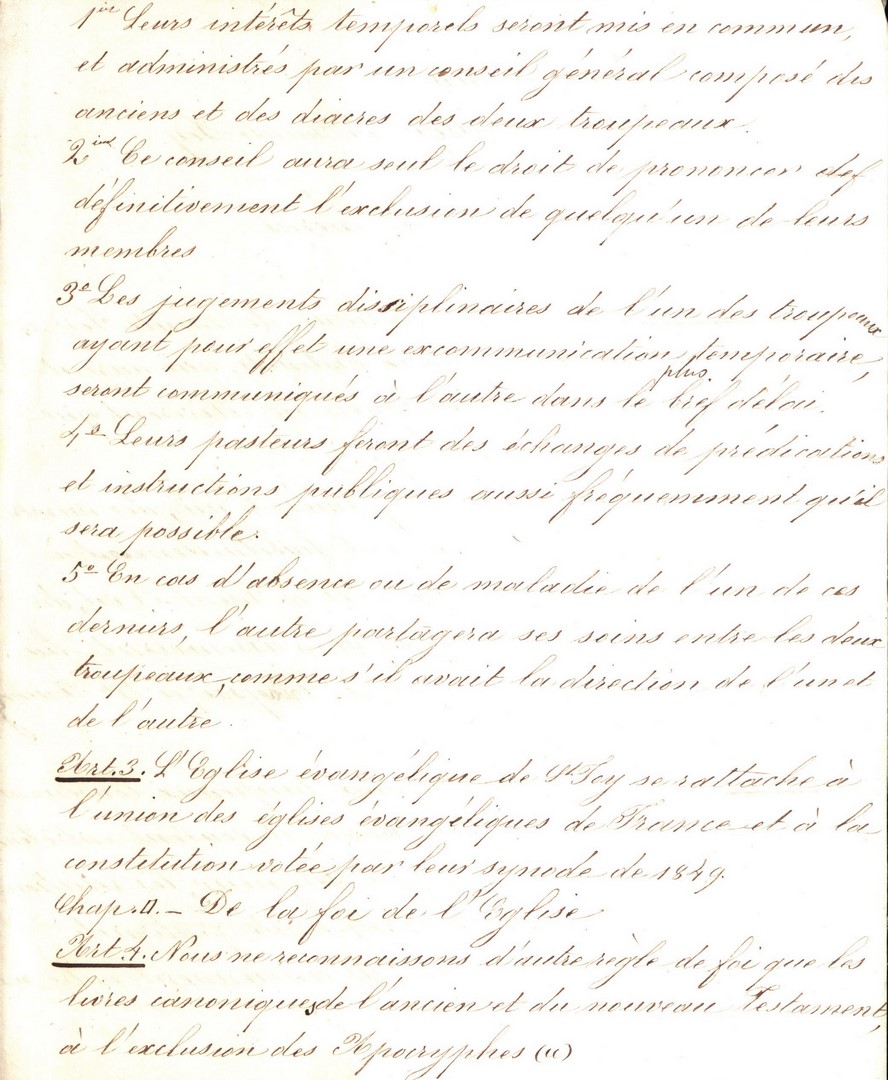 1ent Leurs intérêts temporels seront mis en commun,
et administrés par un conseil général composé des
anciens et des diacres des deux troupeaux.
2ent Ce conseil aura seul le droit de prononcer def
définitivement l'exclusion de quelqu'un de leurs
membres
3º Les jugements dissiplinaires de l'un des troupeaux
ayant pour effet une excommunication temporaire,
seront communiqués à l'autre dans le plus bref délai.
4º Leurs pasteurs feront des échanges de prédications
et instructions publiques aussi fréquemment qu'il
sera possible.
5º En cas d'absence ou de maladie de l'un de ces
derniers, l'autre partagera ses soins entre les deux
troupeaux, comme s'il avait la direction de l'un et
de l'autre.
Art. 3. L'Eglise évangélique de Ste Foy se rattache à
l'union des églises évangéliques de France et à la
constitution votée par leur synode de 1849.
Chap. II. – De la foi de l'Eglise
Art 4. Nous ne reconnaissons d'autre règle de foi que les
livres canoniques de l'ancien et du nouveau Testament,
à l'exclusion des Apocryphes